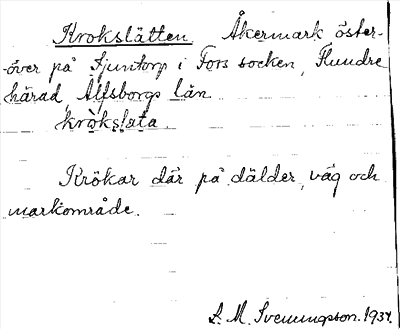 Krokslätten Åkermark öster-
över på Sjuntorp i Fors socken, Flundre
härad, Älfsborgs län
kròkslata.
Krökar där på dälder, väg och
markområde.
L. M. Svenungsson. 1934.